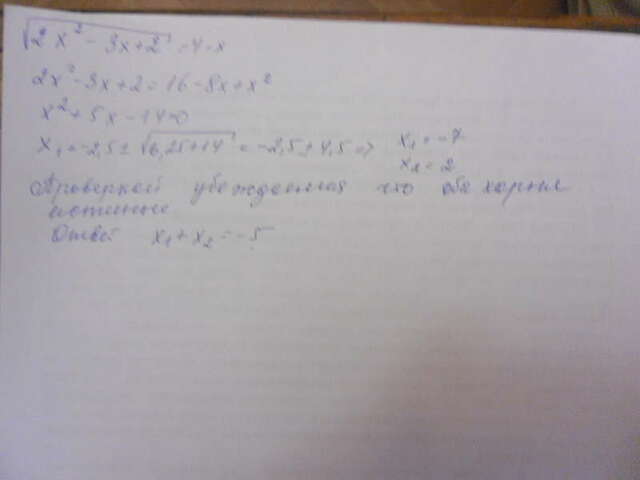 √2x² - 3x + 2 = 4 - x
2x² - 3x + 2 = 16 - 8x + x²
x² + 5x - 14 = 0
x₁ = -2,5 ± √6,25 + 14 = -2,5 ± 4,5 => x₁ = -7
x₂ = 2
Проверкой убеждаемся что оба корня
истинные
Ответ x₁ + x₂ = -5